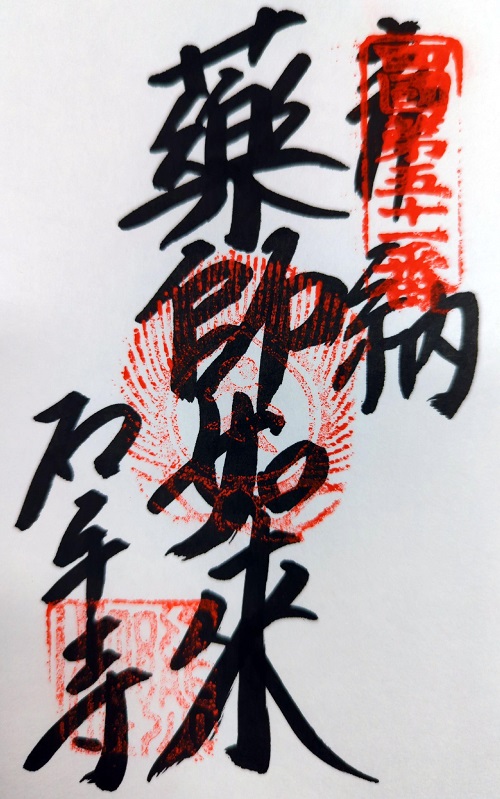 奉納
四国第五十一番
薬師如来
石手寺